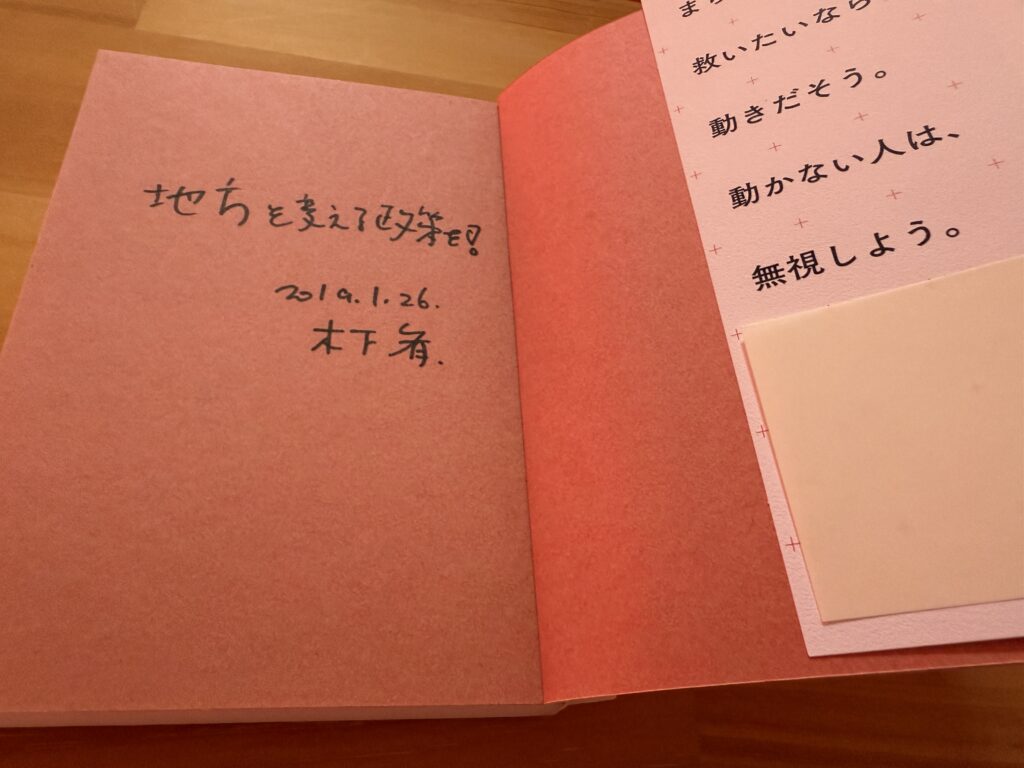 地方を変える政策を!
2019.1.26.
木下斉.
救いたいなら
動きだそう。
動かない人は、
無視しよう。